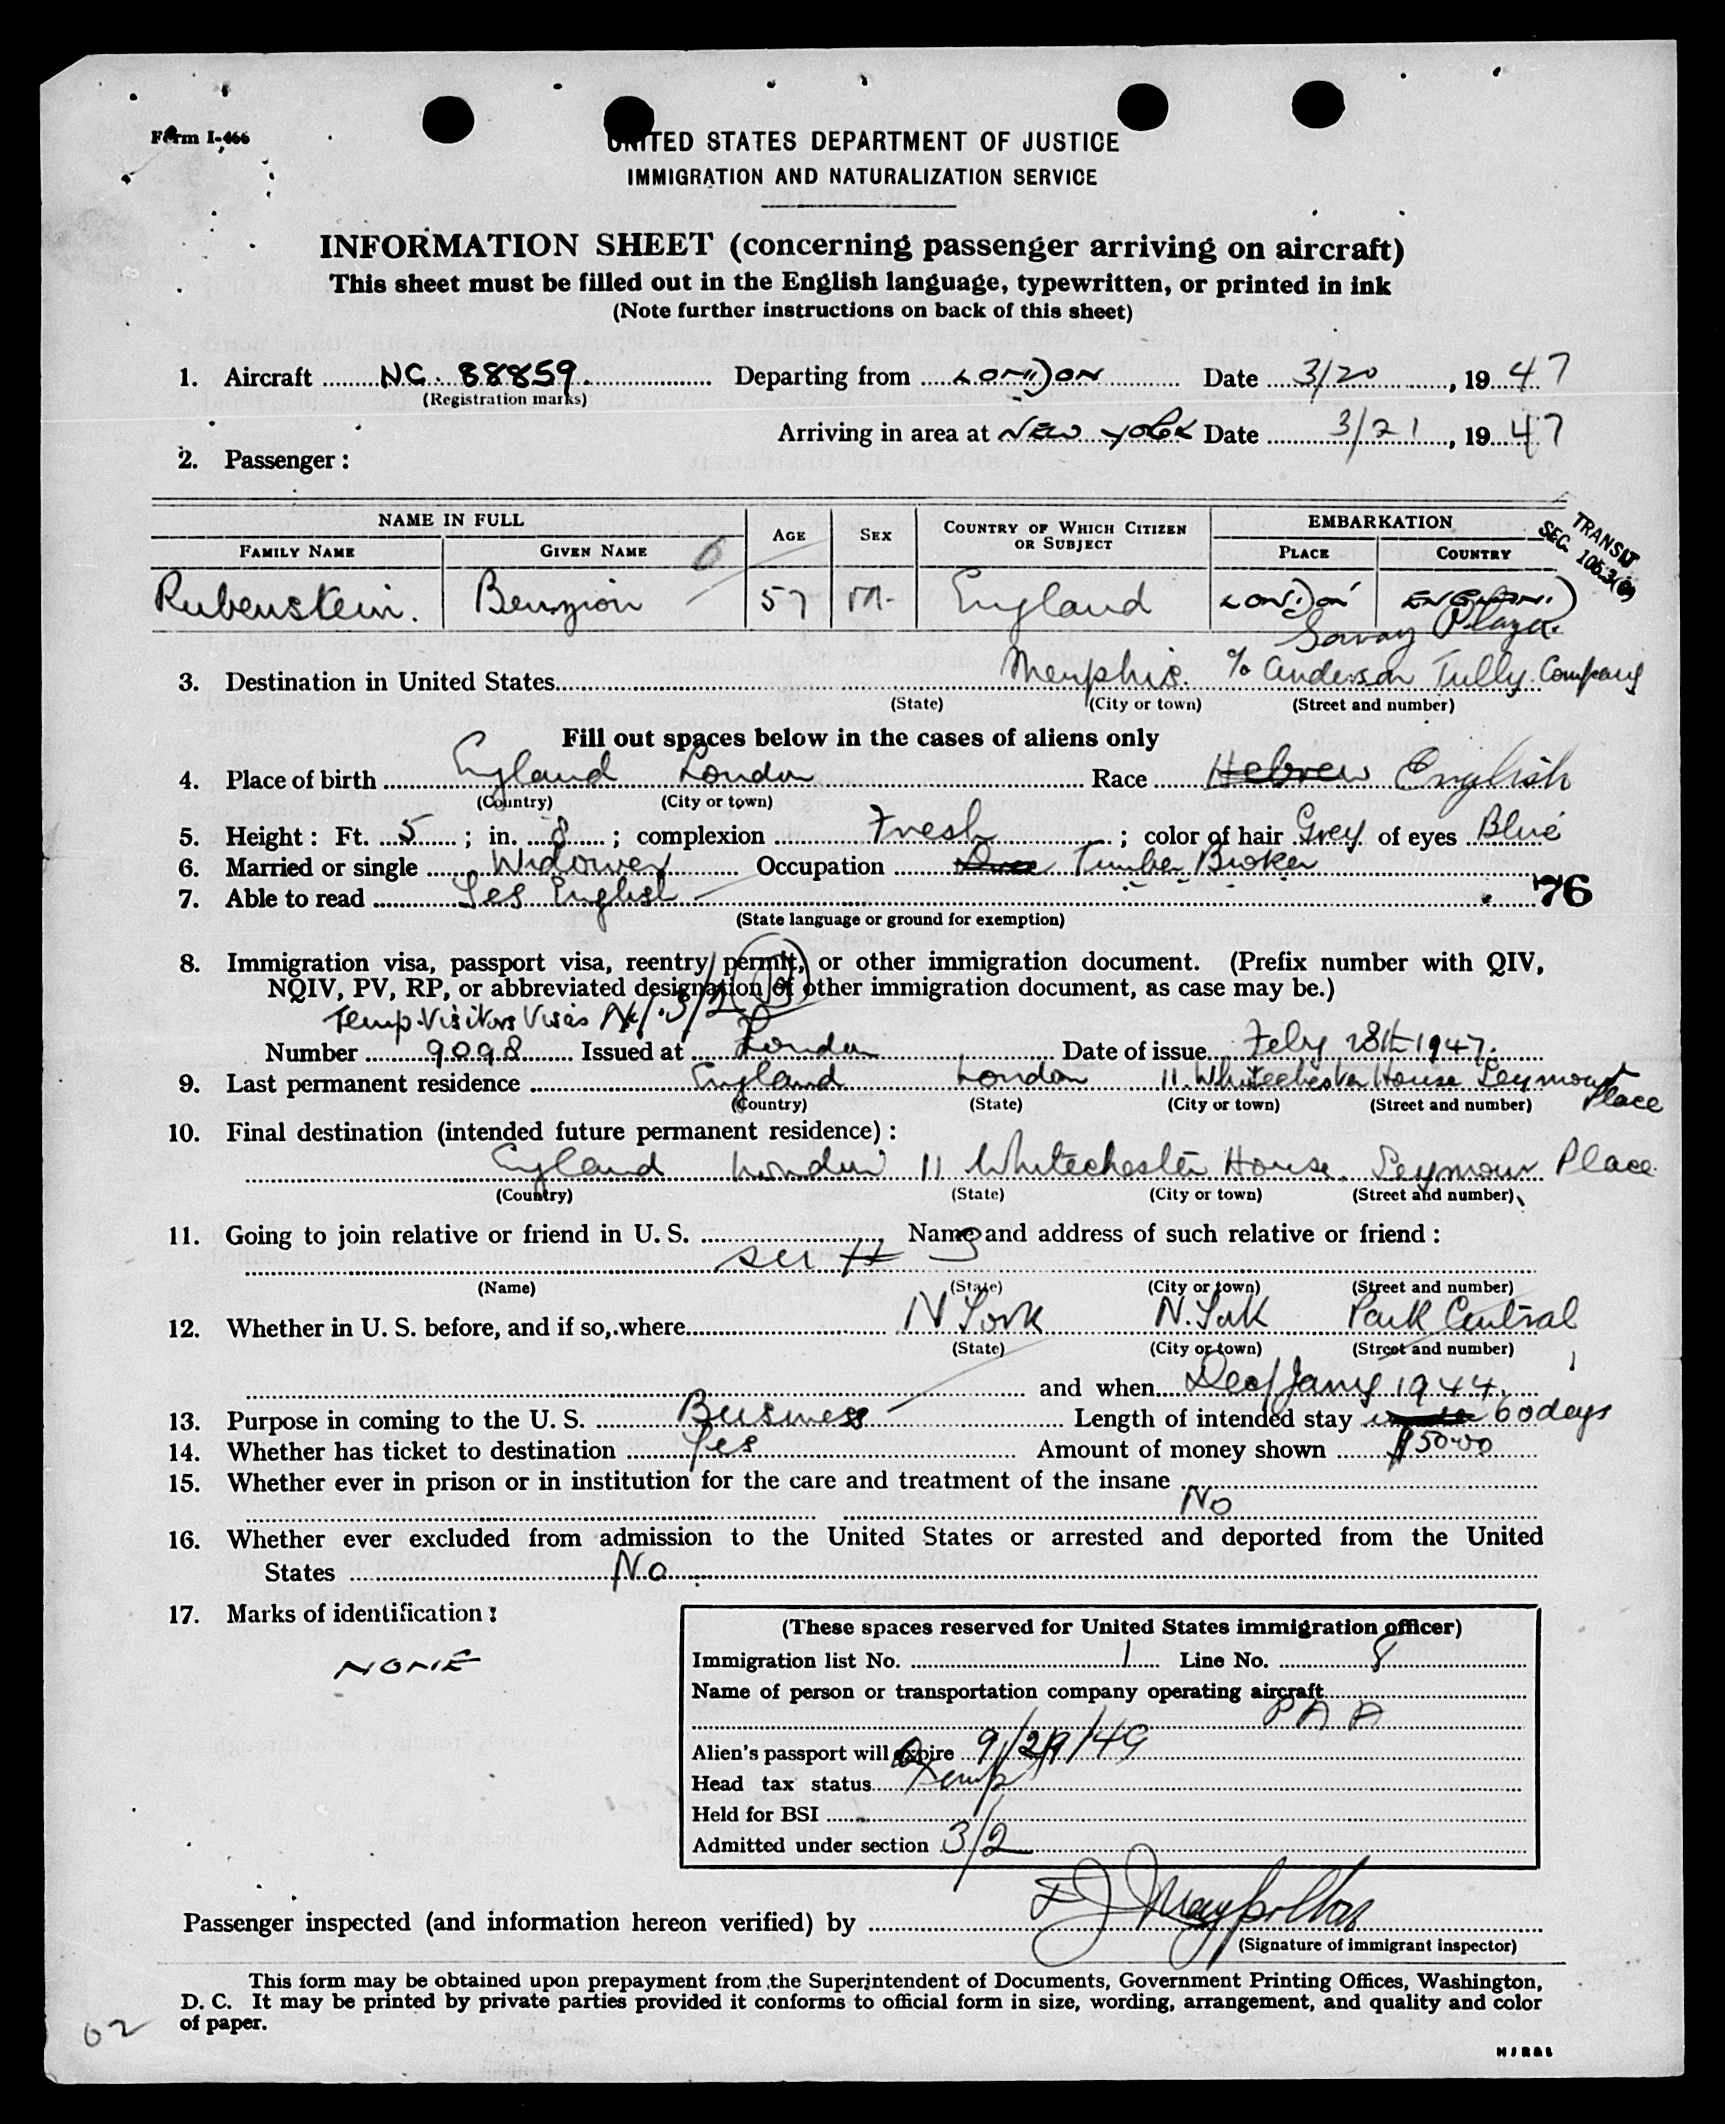 Form I-466
UNITED STATES DEPARTMENT OF JUSTICE
IMMIGRATION AND NATURALIZATION SERVICE
INFORMATION SHEET (concerning passenger arriving on aircraft)
This sheet must be filled out in the English language, typewritten, or printed in ink
(Note further instructions on back of this sheet)
1. Aircraft NC. 88859. Departing from LONDON Date 3/20, 1947
(Registration marks)
Arriving in area at NEW YORK Date 3/21, 1947
2. Passenger:
NAME IN FULL AGE SEX COUNTRY OF WHICH CITIZEN OR SUBJECT EMBARKATION
FAMILY NAME GIVEN NAME PLACE COUNTRY
TRANSIT
SEC. 105.3(
Rubenstein. Benzion 57 M. England LONDON ENGLAND
Savoy Plaza.
3. Destination in United States Memphis. c/o Anderson Tully Company
(State) (City or town) (Street and number)
Fill out spaces below in the cases of aliens only
4. Place of birth England London Race Hebrew English
(Country) (City or town)
5. Height: Ft. 5; in. 8; complexion Fresh; color of hair Grey of eyes Blue
6. Married or single Widower Occupation Timber Broker
7. Able to read Yes English
76
(State language or ground for exemption)
8. Immigration visa, passport visa, reentry permit, or other immigration document. (Prefix number with QIV,
NQIV, PV, RP, or abbreviated designation of other immigration document, as case may be.)
Temp. Visitors Visas 3/2
Number 9098 Issued at London Date of issue Feby 28th 1947.
9. Last permanent residence England London 11. Whitechester House Seymour Place
(Country) (State) (City or town) (Street and number)
10. Final destination (intended future permanent residence):
England London 11 Whitechester House. Seymour Place.
(Country) (State) (City or town) (Street and number)
11. Going to join relative or friend in U. S. Name and address of such relative or friend:
see # 3
(Name) (State) (City or town) (Street and number)
12. Whether in U. S. before, and if so, where N York N. York Park Central
(State) (City or town) (Street and number)
and when Dec/Jany 1944.
13. Purpose in coming to the U. S. Business Length of intended stay 60 days
14. Whether has ticket to destination Yes Amount of money shown $50.00
15. Whether ever in prison or in institution for the care and treatment of the insane
No
16. Whether ever excluded from admission to the United States or arrested and deported from the United
States No
17. Marks of identification:
NONE
(These spaces reserved for United States immigration officer)
Immigration list No. 1 Line No. 8
Name of person or transportation company operating aircraft
PAA
Alien's passport will expire 9/29/49
Head tax status Exempt
Held for BSI
Admitted under section 3/2
Passenger inspected (and information hereon verified) by
(Signature of immigrant inspector)
This form may be obtained upon prepayment from the Superintendent of Documents, Government Printing Offices, Washington,
D. C. It may be printed by private parties provided it conforms to official form in size, wording, arrangement, and quality and color
of paper.
02